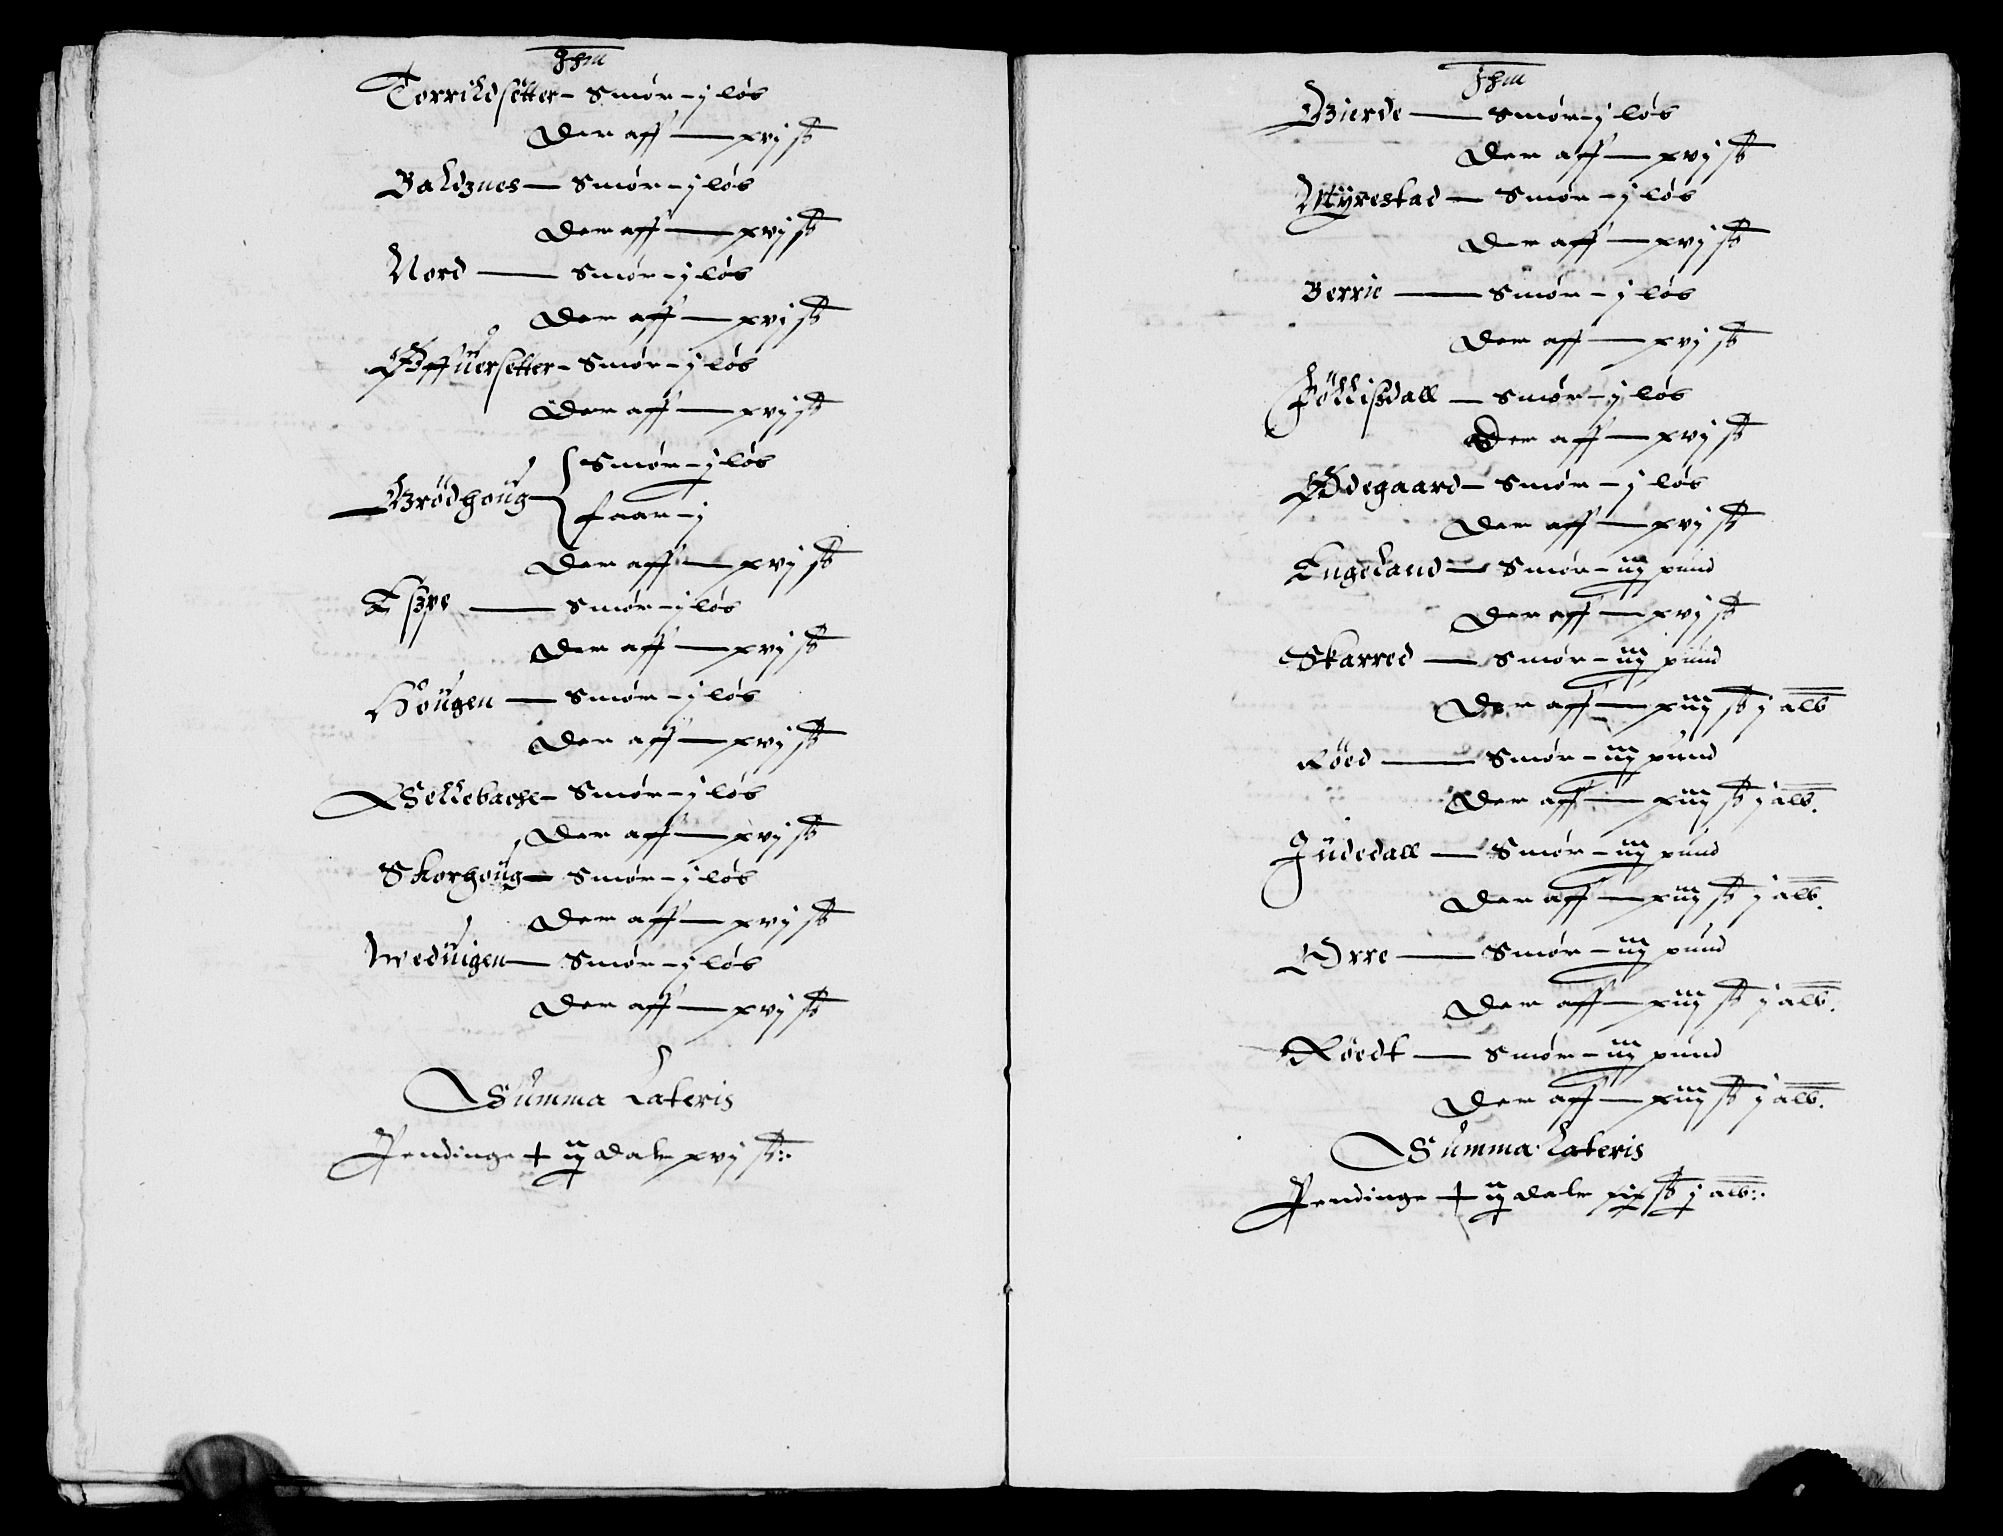 Jhm
Torrildsetter - Smør - j løb
Der aff — xvj sk
Baldznes — Smør - j løb
Der aff — xvj sk
Nord — Smør - j løb
Der aff — xvj sk
Offuersetter - Smør - j løb
Der aff — xvj sk
Smør - j løb
Brödhoug
faar - j
Der aff — xvj sk
Eszpe — Smør - j løb
Der aff — xvj sk
Hougen — Smør - j løb
Der aff — xvj sk
Sellebache - Smør - j løb
Der aff — xvj sk
Skorhoug — Smør - j løb
Der aff — xvj sk
Weduigen — Smør - j løb
Der aff — xvj sk
Summa Lateris
Pendinge + iij dalr xvj sk
Jhm
Gierde — Smør - j løb
Der aff — xvj sk
Myrestad — Smør - j løb
Der aff — xvj sk
Berrie — Smør - j løb
Der aff — xvj sk
Föllisdall — Smør - j løb
Der aff — xvj sk
Ødegaard - Smør - j løb
Der aff — xvj sk
Engeland — Smør - iiij pund
Der aff — xvj sk
Skarred — Smør - iiij pund
Der aff — xiiij sk j alb
Röed — Smør - iiij pund
Der aff — xiiij sk j alb.
Judedall — Smør - iiij pund
Der aff — xiiij sk j alb.
Orre — Smør - iiij pund
Der aff — xiiij sk j alb.
Röedt — Smør - iiij pund
Der aff — xiiij sk j alb.
Summa Lateris
Pendinge + ij dalr xix sk j alb